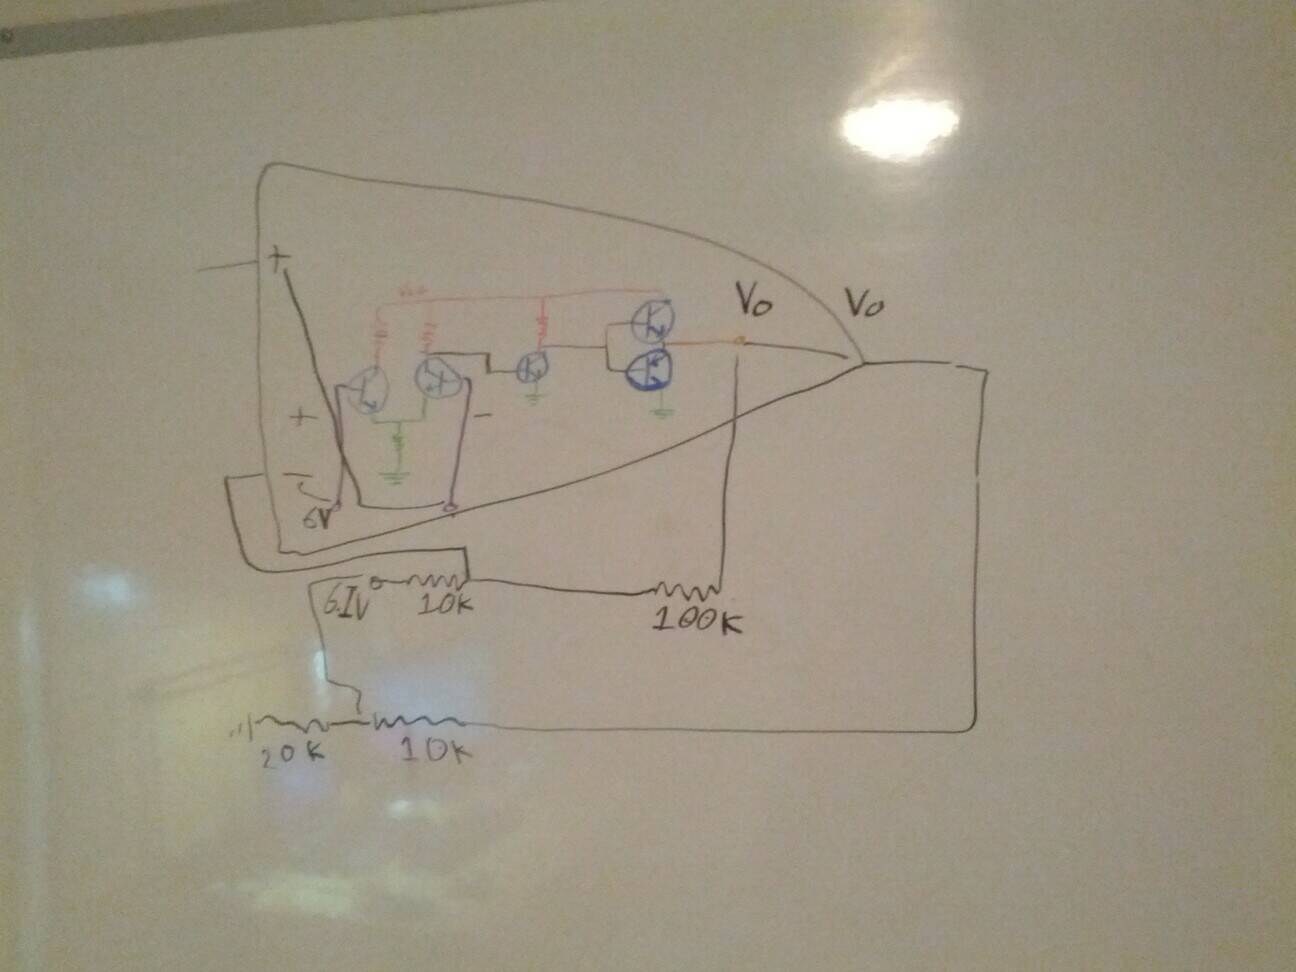 +
Vo
Vo
+
-
-
6V
6.1V
10K
100K
20K
10K